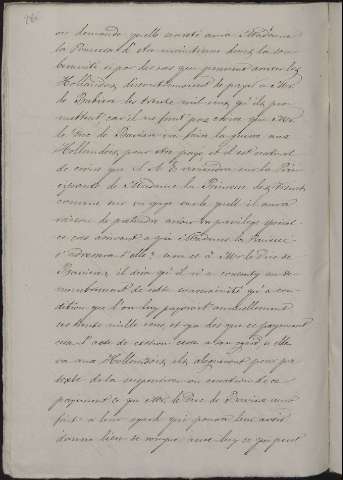 on demande quelle sureté aura Madame
la Princesse d'etre maintenue dans la sou-
veraineté si par des cas que peuvent arriver les
Hollandois discontinuoient de payer a Mr.
de Baviere les trente mil ecus qu'ils pro-
mettent car il ne faut pas croire que Mr.
le Duc de Baviere va faire la guerre aux
Hollandois pour etre payé et il est naturel
de croire que S. A. E. reviendra sur la Sou-
veraineté de Madame la Princesse des Ursins
comme sur un gage sur le quel il aura
raison de pretendre avoir un privilege special
ce cas arrivant a qui Madame la Princesse
s'adressera t'elle? sera ce a Mr. le Duc de
Baviere, il dira qu'il n'a consenty au de-
membrement de cette souveraineté qu'a con-
dition que l'on luy payeroit annuellement
ces trente mille ecus, et que des que ce payement
cesse l'acte de cession cesse a son egard, si elle
va aux Hollandois, ils allegueront pour pre-
texte de la suspension ou cessation de ce
payement ce que Mr. le Duc de Baviere aura
fait a leur egard qui pourra leur avoir
donné lieu de rompre avec luy ce qui peut